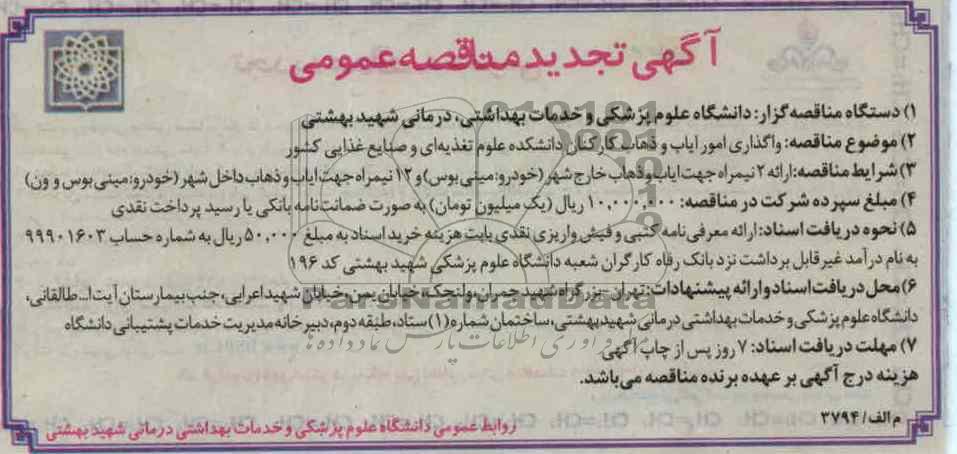 آگهی تجدید مناقصه عمومی
۱) دستگاه مناقصه گزار: دانشگاه علوم پزشکی و خدمات بهداشتی، درمانی شهید بهشتی
۲) موضوع مناقصه: واگذاری امور ایاب و ذهاب کارکنان دانشکده علوم تغذیه‌ای و صنایع غذایی کشور
۳) شرایط مناقصه: ارائه ۲ نیمراه جهت ایاب و ذهاب خارج شهر (خودرو: مینی بوس) و ۱۲ نیمراه جهت ایاب و ذهاب داخل شهر (خودرو: مینی بوس و ون)
۴) مبلغ سپرده شرکت در مناقصه: ۱۰,۰۰۰,۰۰۰ ریال (یک میلیون تومان) به صورت ضمانت‌نامه بانکی یا رسید پرداخت نقدی
۵) نحوه دریافت اسناد: ارائه معرفی‌نامه کتبی و فیش واریزی نقدی بابت هزینه خرید اسناد به مبلغ ۵۰,۰۰۰ ریال به شماره حساب ۹۹۹۰۱۶۰۳
به نام درآمد غیرقابل برداشت نزد بانک رفاه کارگران شعبه دانشگاه علوم پزشکی شهید بهشتی کد ۱۹۶
۶) محل دریافت اسناد و ارائه پیشنهادات: تهران- بزرگراه شهید چمران، ولنجک، خیابان یمن، خیابان شهید اعرابی، جنب بیمارستان آیت‌ا... طالقانی،
دانشگاه علوم پزشکی و خدمات بهداشتی درمانی شهید بهشتی، ساختمان شماره (۱) ستاد، طبقه دوم، دبیرخانه مدیریت خدمات پشتیبانی دانشگاه
۷) مهلت دریافت اسناد: ۷ روز پس از چاپ آگهی.
هزینه درج آگهی بر عهده برنده مناقصه می‌باشد.
م الف/ ۳۷۹۴
روابط عمومی دانشگاه علوم پزشکی و خدمات بهداشتی درمانی شهید بهشتی